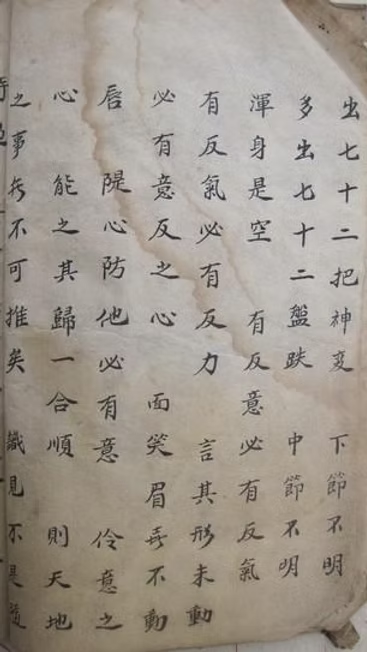 出七十二把神变 下節不明
多出七十二盤跌 中節不明
渾身是空 有反意必有反氣
有反氣必有反力 言其形未動
必有意反之心 面笑眉喜不動
唇 隄心防他必有意 伶意之
心 能之其歸一合順 則天地
之事 不可推矣 識見不是